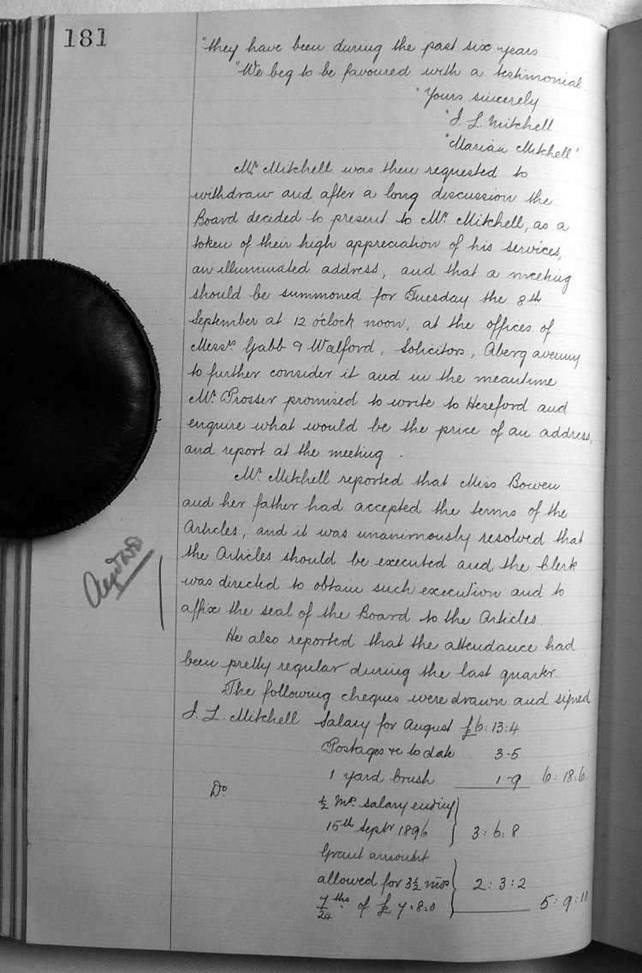 181
"they have been during the past six years
"We beg to be favoured with a testimonial
"Yours sincerely
"J. L. Mitchell
"Marian Mitchell"
Mr. Mitchell was then requested to
withdraw and after a long discussion the
Board decided to present to Mr. Mitchell, as a
token of their high appreciation of his services,
an illuminated address, and that a meeting
should be summoned for Tuesday the 8th
September at 12 o'clock noon, at the offices of
Messrs. Gabb & Walford, Solicitors, Abergavenny
to further consider it and in the meantime
Mr. Prosser promised to write to Hereford and
enquire what would be the price of an address,
and report at the meeting.
Mr. Mitchell reported that Miss Bowen
and her father had accepted the terms of the
Articles, and it was unanimously resolved that
the Articles should be executed and the Clerk
was directed to obtain such execution and to
affix the seal of the Board to the Articles.
He also reported that the attendance had
been pretty regular during the last quarter.
The following cheques were drawn and signed
J. L. Mitchell Salary for August £6:13:4
Postages &c to date 3-5
1 yard brush 1-9 6:18:6
Do. ½ Mos. salary ending
15th Septr 1896 3:6:8
Grant amount
allowed for 3½ mos 2:3:2
7/24ths of £7.8.0 5:9:10